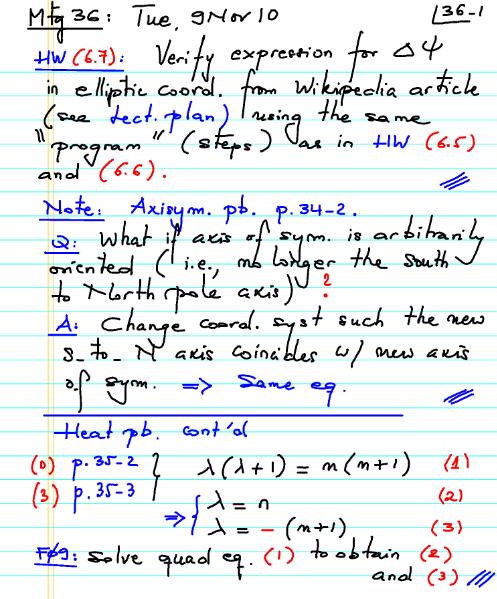 Mtg 36: Tue, 9 Nov 10 36-1
HW (6.7): Verify expression for Δψ
in elliptic coord. from Wikipedia article
(see lect. plan) using the same
"program" (steps) as in HW (6.5)
and (6.6).
Note: Axisym. pb. p. 34-2.
Q: What if axis of sym. is arbitrarily
oriented (i.e., no longer the South
to North pole axis)?
A: Change coord. syst such the new
S_to_N axis coincides w/ new axis
of sym. => Same eq.
Heat pb. cont'd
(0) p. 35-2 } λ(λ+1) = n(n+1) (1)
(3) p. 35-3
=> { λ = n (2)
λ = -(n+1) (3)
solve quad eq. (1) to obtain (2)
and (3)